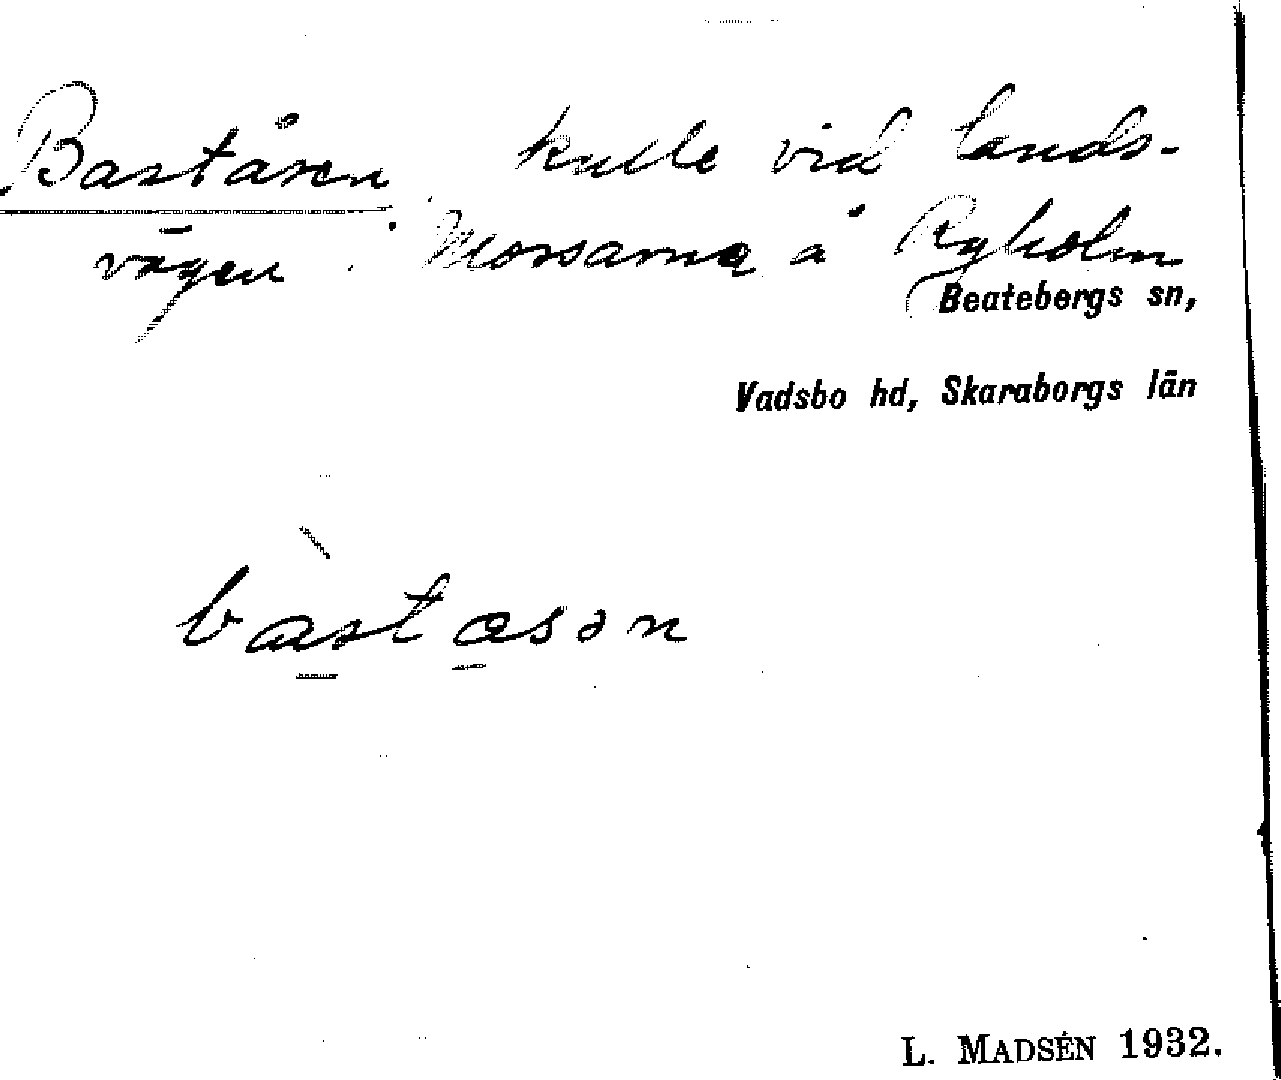 Baståsen kulle vid lands-
vägen i Mossarna å Ryholm
Beatebergs sn,
Vadsbo hd, Skaraborgs län
bàstasən
L. MADSÉN 1932.